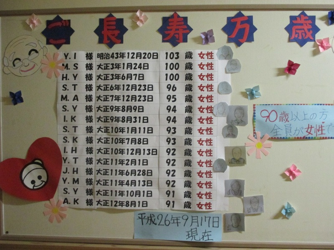 長寿万歳
Y. I 様 明治43年12月20日 103 歳 女性
M. S 様 大正3年1月24日 100 歳 女性
H. Y 様 大正3年6月7日 100 歳 女性
S. T 様 大正6年12月23日 96 歳 女性
M. A 様 大正7年12月23日 95 歳 女性
S. Y 様 大正9年8月9日 94 歳 女性
I. K 様 大正9年8月31日 94 歳 女性
S. T 様 大正10年1月11日 93 歳 女性
S. K 様 大正10年7月8日 93 歳 女性
I. H 様 大正10年12月13日 92 歳 女性
Y. T 様 大正11年2月1日 92 歳 女性
J. H 様 大正11年6月28日 92 歳 女性
Y. M 様 大正11年4月13日 92 歳 女性
S. Y 様 大正11年10月1日 91 歳 女性
A. K 様 大正12年8月1日 91 歳 女性
90歳以上の方
全員が女性
平成26年9月17日
現在